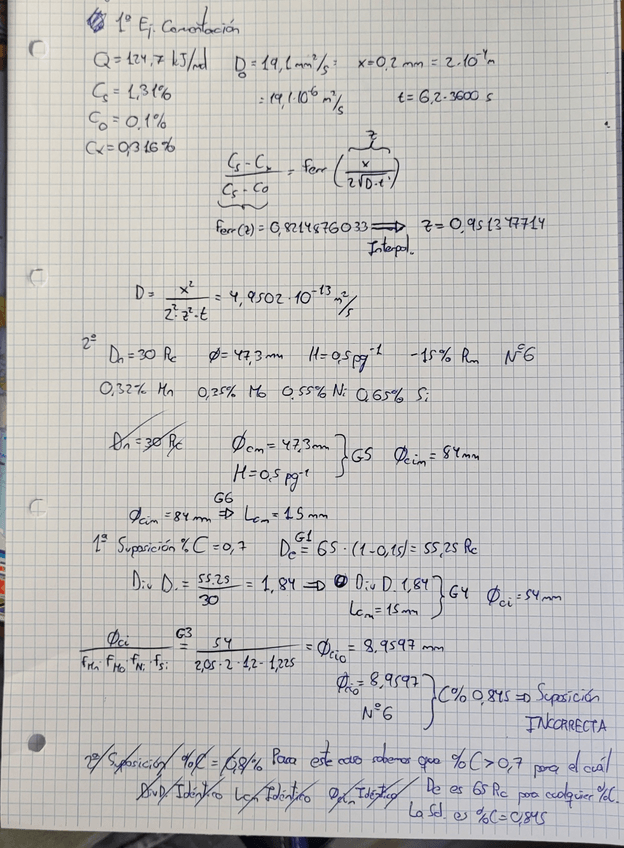 1º Ej. Cementación
Q = 124,7 kJ/mol D₀ = 19,1 mm²/s = x = 0,2 mm = 2·10⁻⁴ m
Cs = 1,31% = 19,1·10⁻⁶ m²/s t = 6,2·3600 s
C₀ = 0,1%
Cx = 0,316%
(Cs - Cx)/(Cs - C₀) = ferr (x/(2√D·t)) z
ferr(z) = 0,8214876033 ⟹ z = 0,951377714
Interpol.
D = x²/(2²·z²·t) = 4,9502·10⁻¹³ m²/s
2º Dn = 30 Rc ϕ = 47,3 mm H = 0,5 pg⁻¹ -15% Rm Nº6
0,32% Mn 0,25% Mo 0,55% Ni 0,65% Si
Dn = 30 Rc ϕcm = 47,3 mm
H = 0,5 pg⁻¹ } G5 ϕcim = 84 mm
ϕcim = 84 mm ⟹ G6 Lcm = 15 mm
1ª Suposición %C = 0,7 De = G1 65·(1-0,15) = 55,25 Rc
Div D. = 55.25/30 = 1,84 ⟹ Div D. 1,84
Lcm = 15 mm } G4 ϕci = 54 mm
ϕci/(fMn·fMo·fNi·fSi) = G3 54/(2,05·2·1,2·1,225) = ϕci₀ = 8,9597 mm
ϕci₀ = 8,9597
Nº6 } C% 0,845 ⟹ Suposición
INCORRECTA
2ª Suposición %C = 0,8% Para este caso sabemos que %C > 0,7 para el cuál
Div D Idéntico Lcm Idéntico Idéntico De es 65 Rc para cualquier %C.
La Sol. es %C = 0,845